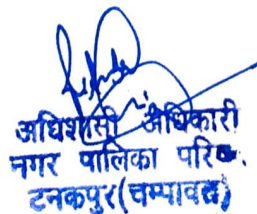 अधिशासी अधिकारी
नगर पालिका परि०.
टनकपुर(चम्पावत)